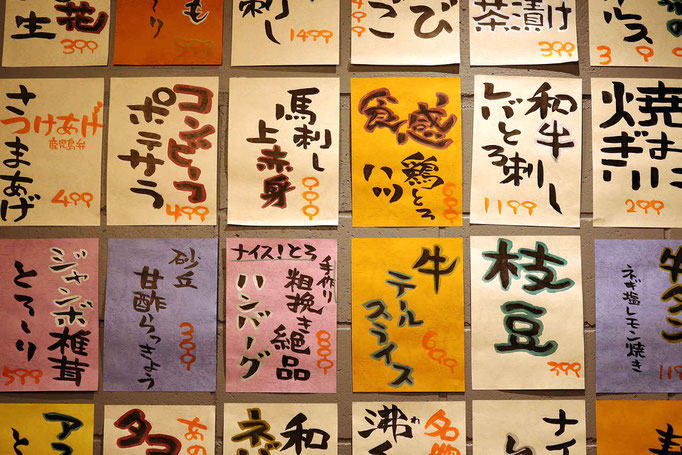 花
生
399
も
〜り
刺し
1499
び
ご
茶漬け
399
ルス
さつまあげ
つけあげ
鹿児島弁
499
コンビーフ
ポテサラ
499
馬刺し
上赤身
食感
鶏とろ
ハツ
600
和牛
レバとろ刺し
1199
299
ジャンボ椎茸
とろ〜り
599
砂丘
甘酢らっきょう
300
ナイス!とろ
手作り
粗挽き絶品
ハンバーグ
800
牛
テール
スライス
600
枝豆
399
牛タン
ネギ塩レモン焼き
11
と
タコ
あの
和
ネバ
名物
沸く
わ
ナイ